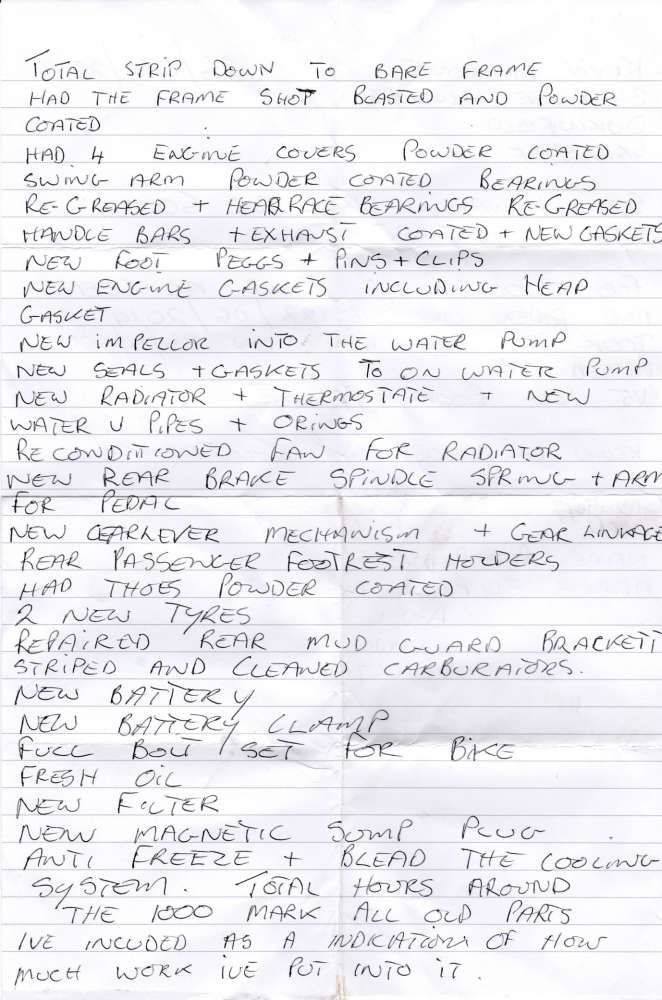 TOTAL STRIP DOWN TO BARE FRAME
HAD THE FRAME SHOT BLASTED AND POWDER
COATED
HAD 4 ENGINE COVERS POWDER COATED
SWING ARM POWDER COATED BEARINGS
RE-GREASED + HEADRACE BEARINGS RE-GREASED
HANDLE BARS + EXHAUST COATED + NEW GASKETS
NEW FOOT PEGGS + PINS + CLIPS
NEW ENGINE GASKETS INCLUDING HEAD
GASKET
NEW IMPELLOR INTO THE WATER PUMP
NEW SEALS + GASKETS TO ON WATER PUMP
NEW RADIATOR + THERMOSTATE + NEW
WATER U PIPES + ORINGS
RE CONDITIONED FAN FOR RADIATOR
NEW REAR BRAKE SPINDLE SPRING + ARM
FOR PEDAL
NEW GEARLEVER MECHANISM + GEAR LINKAGE
REAR PASSENGER FOOTREST HOLDERS
HAD THOES POWDER COATED
2 NEW TYRES
REPAIRED REAR MUD GUARD BRACKETT
STRIPED AND CLEANED CARBURATORS.
NEW BATTERY
NEW BATTERY CLAMP
FULL BOLT SET FOR BIKE
FRESH OIL
NEW FILTER
NEW MAGNETIC SUMP PLUG
ANTI FREEZE + BLEAD THE COOLING
SYSTEM. TOTAL HOURS AROUND
THE 1000 MARK ALL OLD PARTS
IVE INCLUDED AS A INDICATION OF HOW
MUCH WORK IVE PUT INTO IT.